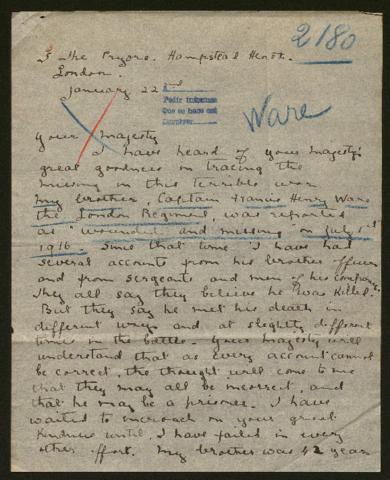 5 The Pryors. Hampstead Heath.
London.
January 22nd
2180
Pedir informes
Que se hace así
Ware
Your Majesty
I have heard of your Majesty's
great goodness in tracing the
missing in this terrible war
My brother, Captain Francis Henry Ware
the London Regiment, was reported
as "wounded and missing" on July 1st
1916. Since that time I have had
several accounts from his brother officers
and from sergeants and men of his company.
They all say they believe he was killed.
But they say he met his death in
different ways and at slightly different
times in the battle. Your Majesty will
understand that as every account cannot
be correct, the thought will come to me
that they may all be incorrect, and
that he may be a prisoner. I have
waited to encroach on your great
kindness until I have failed in every
other effort. My brother was 42 years